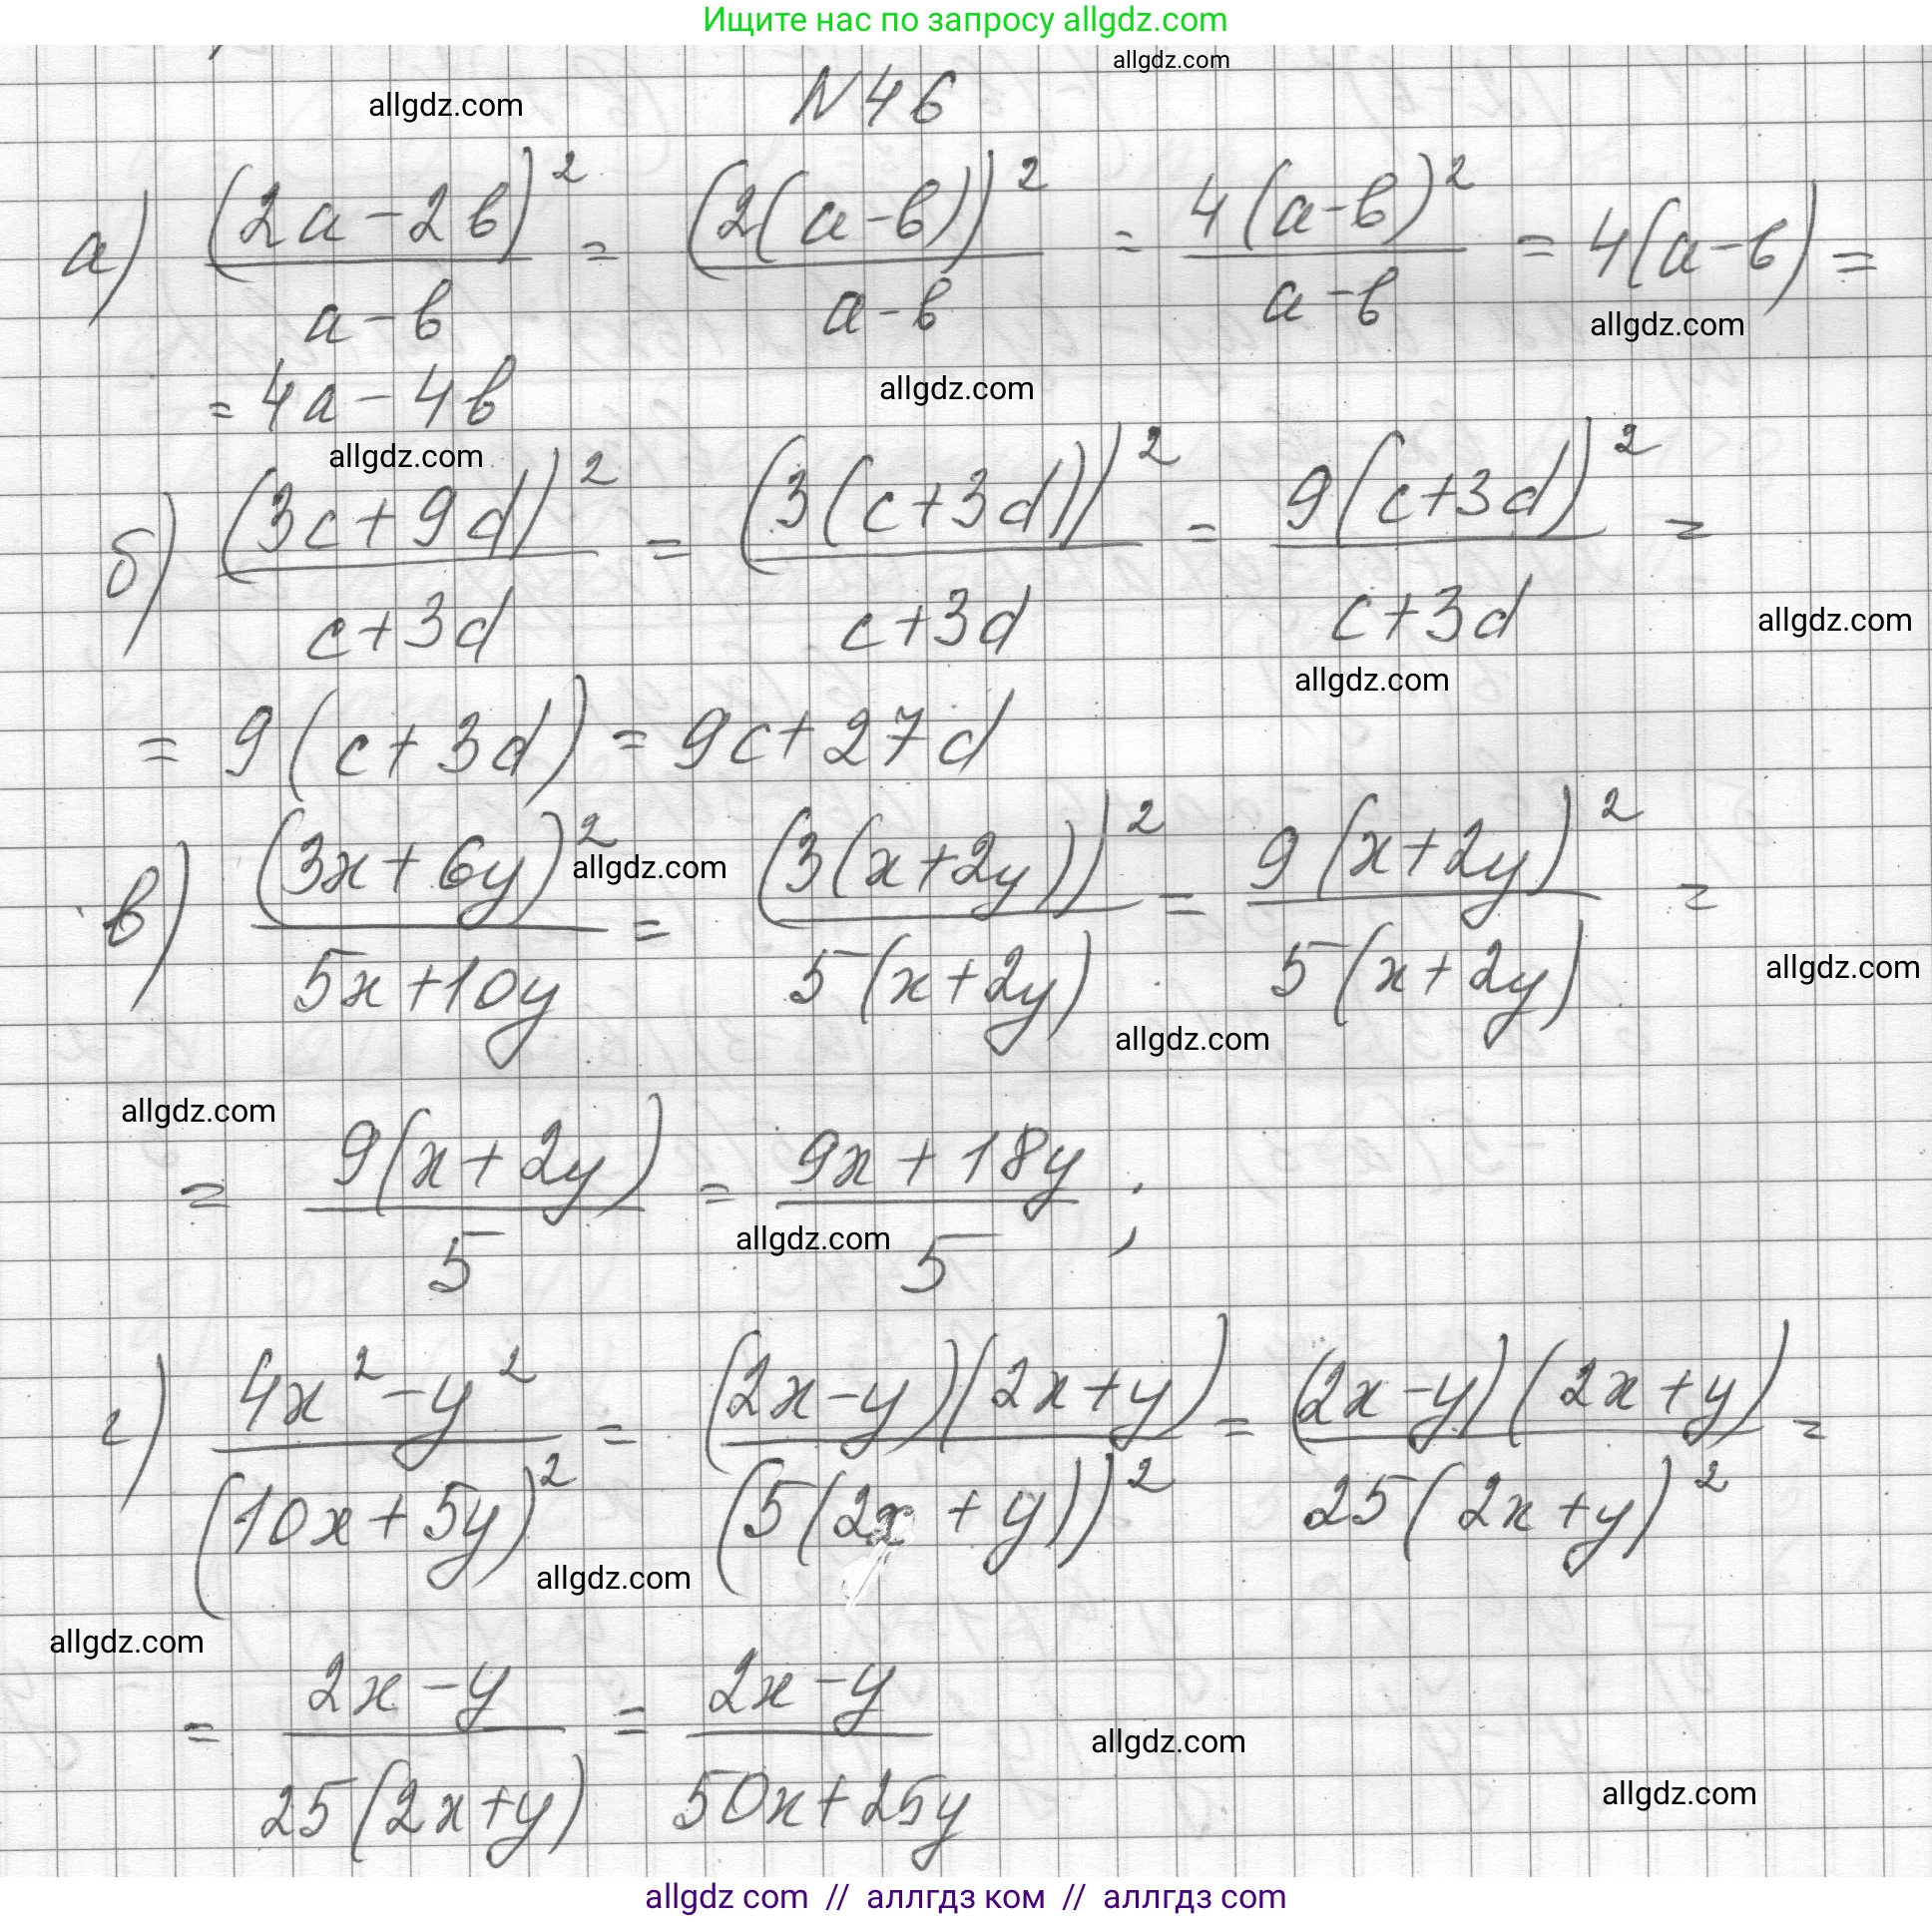 Ищите нас по запросу allgdz.com
allgdz.com
allgdz.com
N46
а) (2a-2b)²/(a-b) = (2(a-b))²/(a-b) = 4(a-b)²/(a-b) = 4(a-b) =
allgdz.com
= 4a-4b
allgdz.com
allgdz.com
б) (3c+9d)²/(c+3d) = (3(c+3d))²/(c+3d) = 9(c+3d)²/(c+3d) =
allgdz.com
allgdz.com
= 9(c+3d) = 9c+27d
в) (3x+6y)²/(5x+10y) = (3(x+2y))²/(5(x+2y)) = 9(x+2y)²/(5(x+2y)) =
allgdz.com
allgdz.com
allgdz.com
allgdz.com
= 9(x+2y)/5 = (9x+18y)/5 ;
allgdz.com
г) (4x²-y²)/(10x+5y)² = (2x-y)(2x+y)/(5(2x+y))² = (2x-y)(2x+y)/(25(2x+y)²) =
allgdz.com
allgdz.com
= (2x-y)/(25(2x+y)) = (2x-y)/(50x+25y)
allgdz.com
allgdz.com
allgdz com // аллгдз ком // аллгдз com